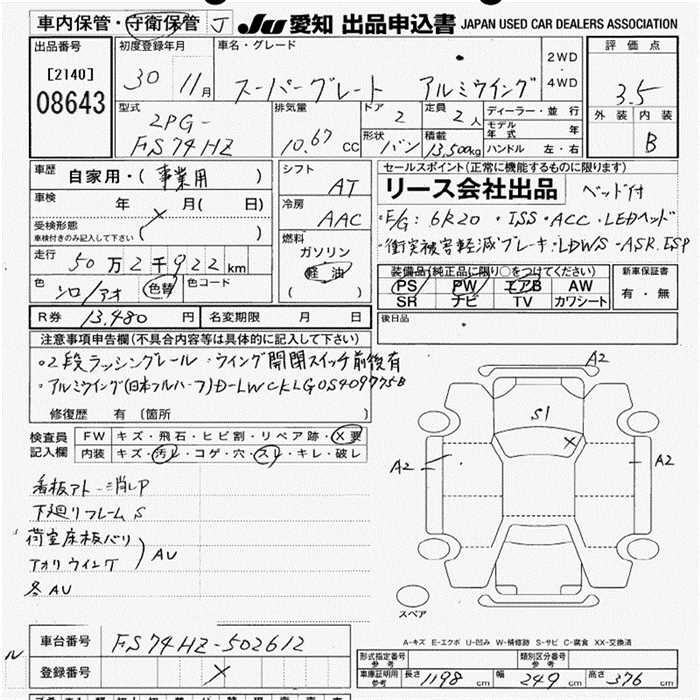 車内保管・守衛保管 J JU 愛知 出品申込書 JAPAN USED CAR DEALERS ASSOCIATION
出品番号 [2140] 08643
初度登録年月 30 11月
車名・グレード スーパーグレート アルミウイング
2WD・4WD
評価点 3.5
外装 内装 B
型式 2PG-FS74HZ
排気量 10.67 CC
ドア 2
形状 バン
定員 2人
積載 13,500kg
ディーラー・並行
モデル年式 年
ハンドル 左・右
車歴 自家用・(事業用)
車検 年 月( 日)
受検形態
車検付きのみ記入して下さい ( )
走行 50万2千922km
色 シロ/アオ 色替 色コード
シフト AT
冷房 AAC
燃料 ガソリン 軽油 ( )
R券 13,480円 名変期限 月 日
セールスポイント(正常に機能するものに限ります)
リース会社出品 ベッド付
・E/G:6R20・ISS・ACC・LEDヘッド
・衝突被害軽減ブレーキ・LDWS・ASR.ESP
装備品(純正品に限り○をつけてください)
PS PW エアB AW
SR ナビ TV カワシート
新車保証書 有・無
後日品
注意事項申告欄(不具合内容等は具体的に記入して下さい)
・2段ラッシングレール・ウイング開閉スイッチ前後有
・アルミウイング(日本フルハーフ)D-LWCKLGOS4097758
修復歴 有〔箇所 〕
検査員記入欄
FW キズ・飛石・ヒビ割・リペア跡・X要
内装 キズ・汚レ・コゲ・穴・スレ・キレ・破レ
看板アト・消しP
下廻りフレームS
荷室床板バリ
アオリウイング AU
各AU
A2
S1
X
A2
A2
スペア
A-キズ E-エクボ U-凹み W-補修跡 S-サビ C-腐食 XX-交換済
車台番号 FS74HZ-502612
登録番号 X
型式指定番号 参考
類別区分番号 参考
車庫証明用 参考 長さ 1198 cm 幅 249 cm 高さ 376 cm